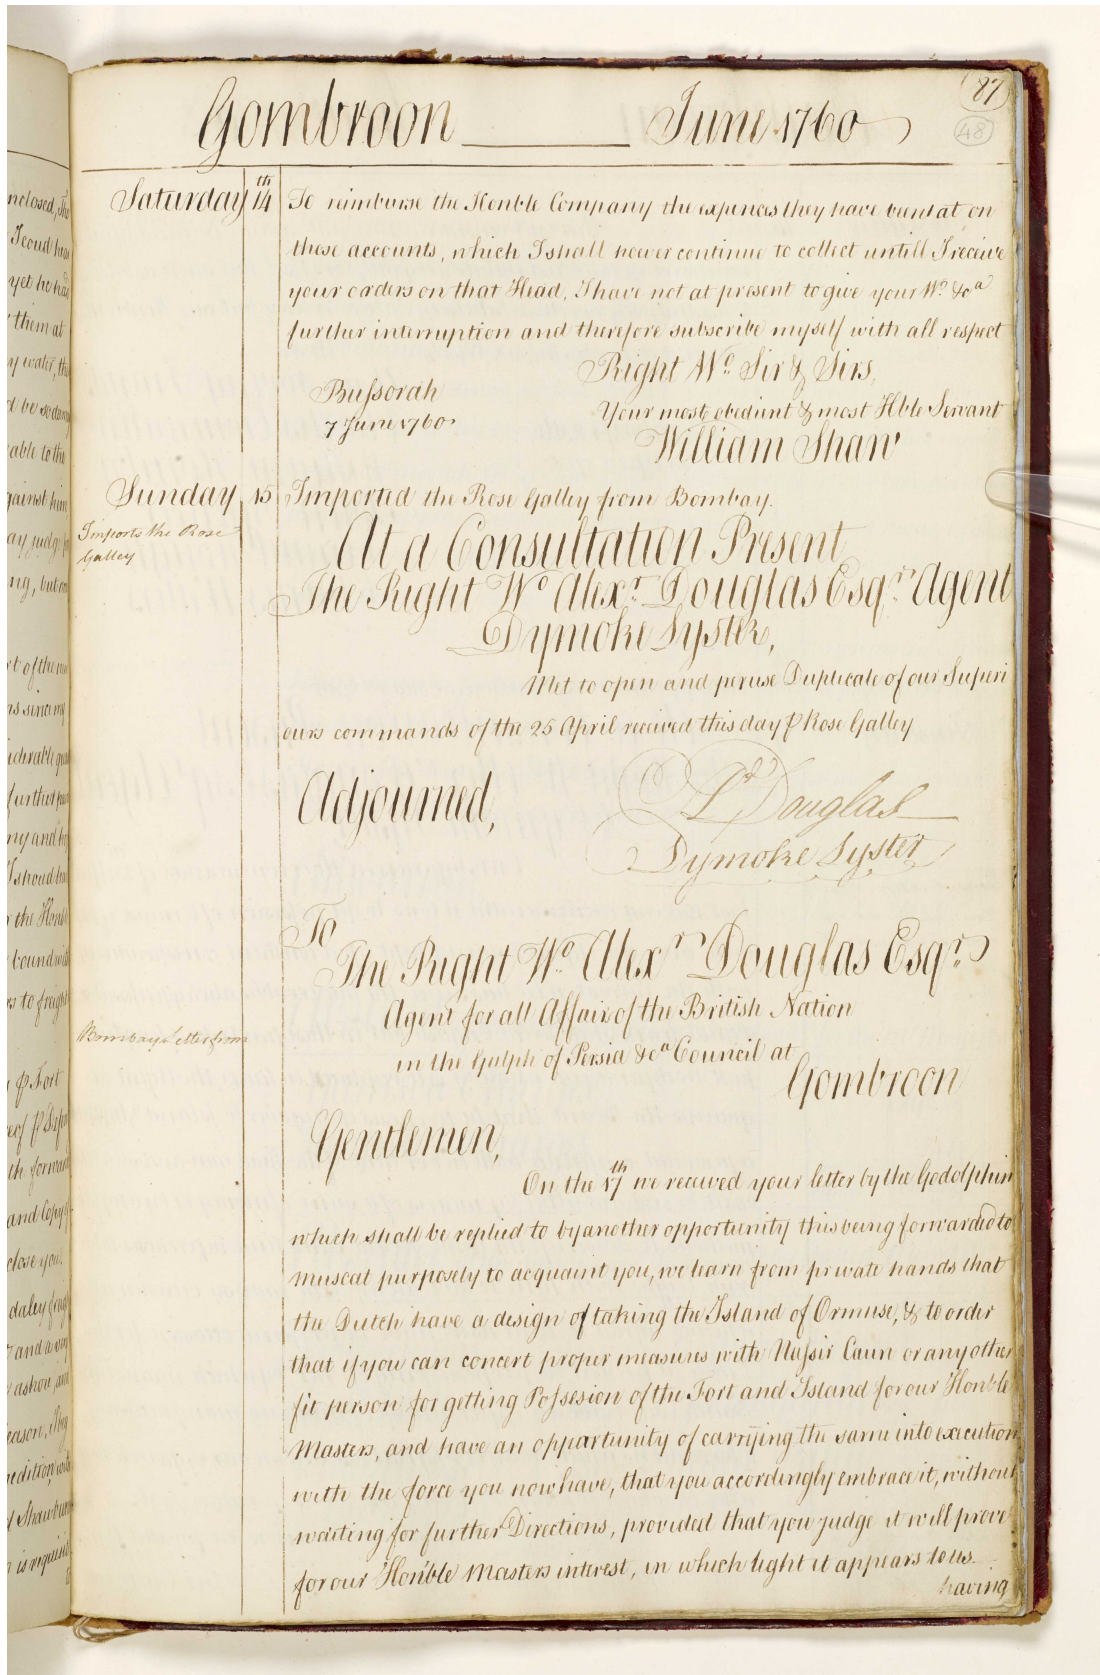 87
48
Gombroon June 1760
Saturday 14th To reimburse the Honble Company the expences they have been at on
these accounts, which I shall however continue to collect untill I receive
your orders on that Head, I have not at present to give your Wo. &ca
further interruption and therefore subscribe myself with all respect
Right Wo. Sir & Sirs,
Bussorah
7 June 1760
Your most obedient & most Hble Servant
William Shaw
Sunday 15 Imported the Rose Galley from Bombay.
Imports the Rose
Galley
At a Consultation Present
The Right Wo Alexr. Douglas Esqr. Agent
Dymoke Lyster,
Met to open and peruse Duplicate of our Superi
ours commands of the 25 April received this day ⅌ Rose Galley
Adjourned,
Ar Douglas
Dymoke Lyster
To
The Right Wo. Alexr Douglas Esqr.
Agent for all Affairs of the British Nation
in the Gulph of Persia &ca Council at
Gombroon
Bombay Letter from
Gentlemen,
On the 17th we received your letter by the Godolphin
which shall be replied to by another opportunity this being forwarded to
Muscat purposely to acquaint you, we learn from private hands that
the Dutch have a design of taking the Island of Ormuse, & to order
that if you can concert proper measures with Nassir Caun or any other
fit person for getting Possesion of the Fort and Island for our Honble
Masters, and have an opportunity of carrying the same into execution
with the force you now have, that you accordingly embrace it, without
waiting for further Directions, provided that you judge it will prove
for our Honble Masters interest, in which light it appears to us.
having